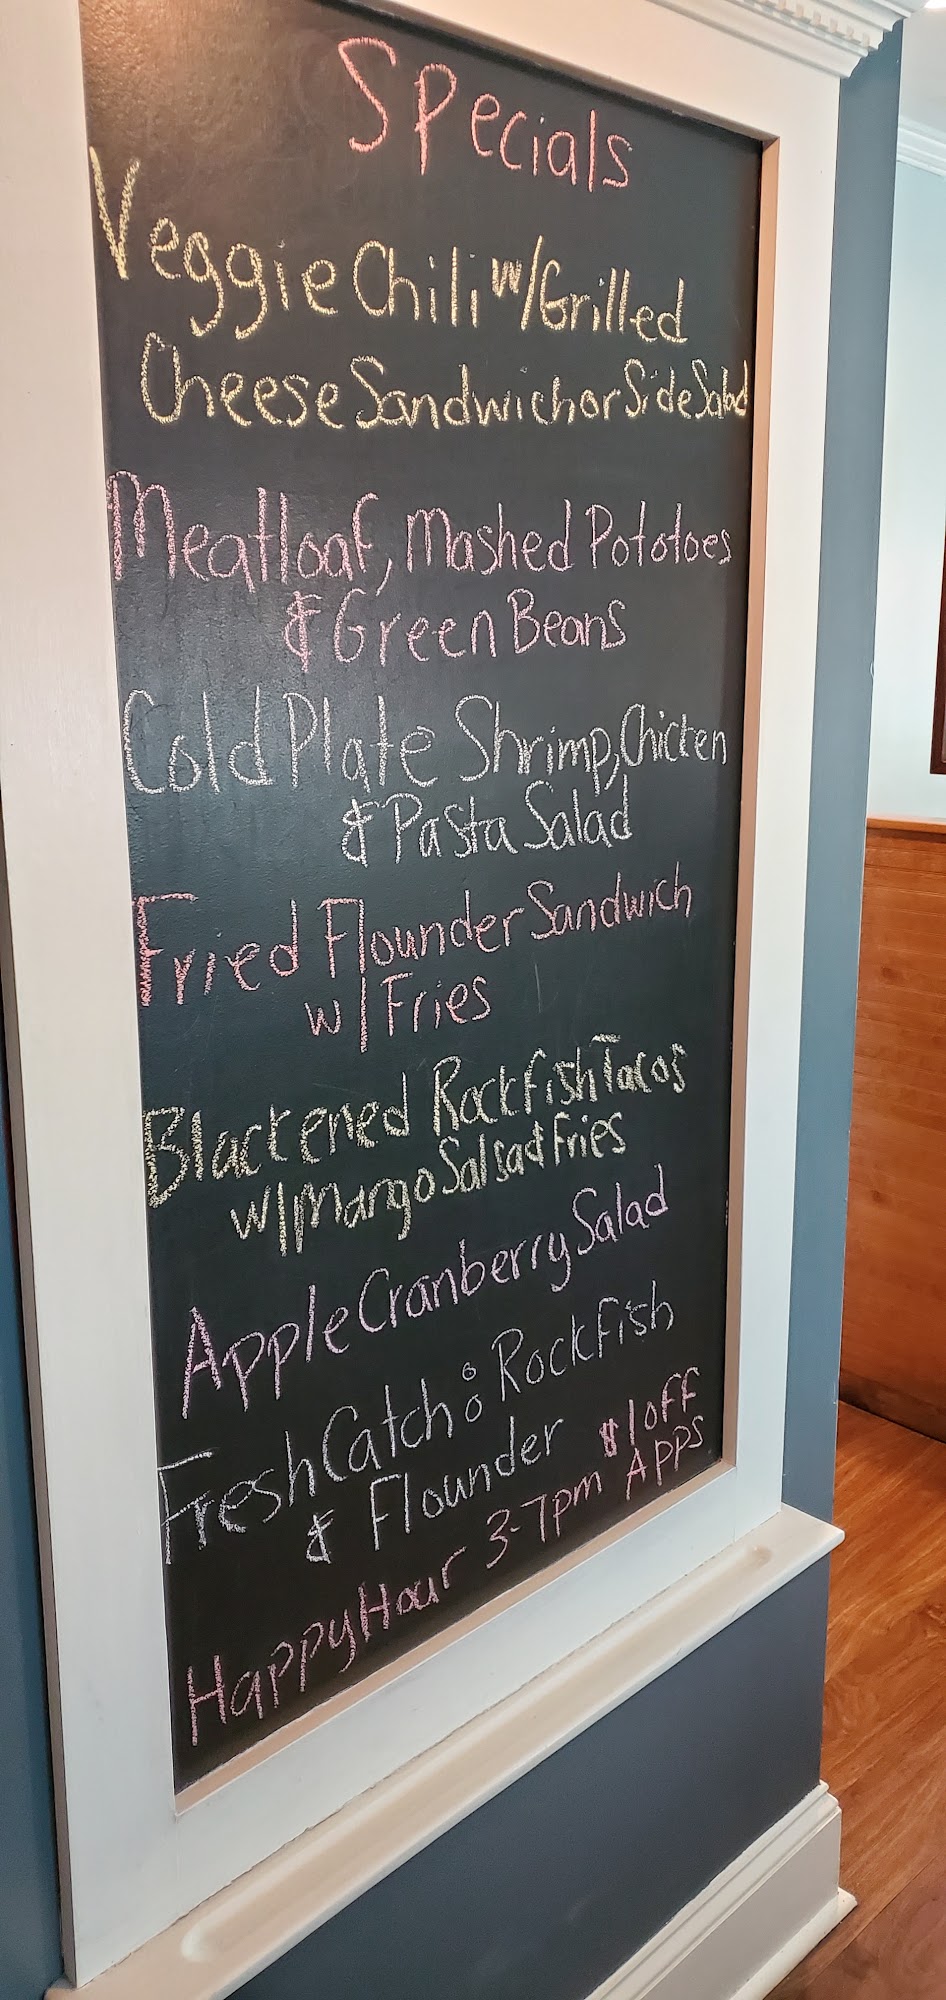 Specials
Veggie Chili w/Grilled
Cheese Sandwich or Side Salad
Meatloaf, Mashed Pototoes
& Green Beans
Cold Plate Shrimp, Chicken
& Pasta Salad
Fried Flounder Sandwich
w/Fries
Blackened Rockfish Tacos
w/Mango Salsa & Fries
Apple Cranberry Salad
Fresh Catch: Rockfish
& Flounder
$1 off
Happy Hour 3-7pm Apps